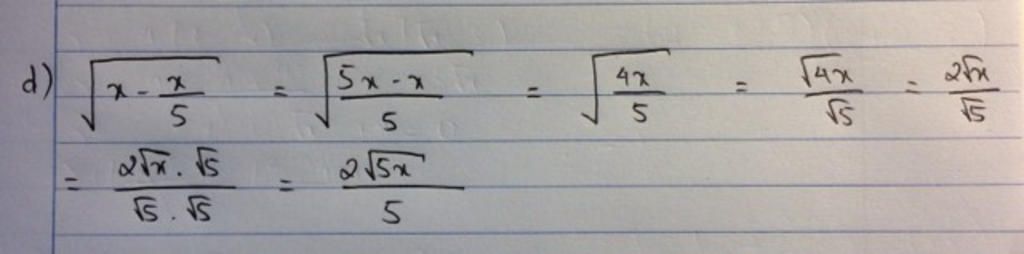 d) √(x - x/5) = √((5x - x)/5) = √(4x/5) = √4x/√5 = 2√x/√5
= (2√x . √5)/(√5 . √5) = 2√5x/5